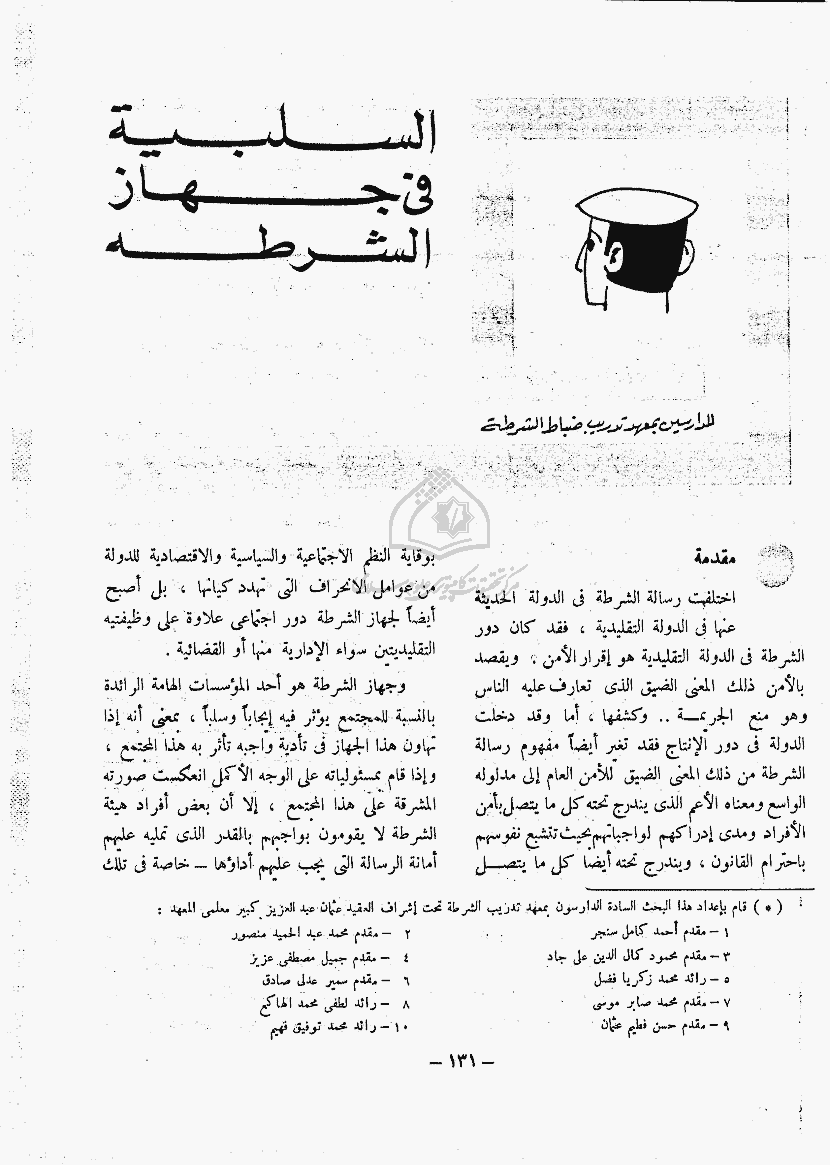 السلبية
فى جهاز
الشرطه
للدارسين بمعهد تدريب ضباط الشرطة
مقدمة
اختلفت رسالة الشرطة فى الدولة الحديثة
عنها فى الدولة التقليدية ، فقد كان دور
الشرطة فى الدولة التقليدية هو إقرار الأمن ، ويقصد
بالأمن ذلك المعنى الضيق الذى تعارف عليه الناس
وهو منع الجريمة .. وكشفها ، أما وقد دخلت
الدولة فى دور الإنتاج فقد تغير أيضاً مفهوم رسالة
الشرطة من ذلك المعنى الضيق للأمن العام إلى مدلوله
الواسع ومعناه الأعم الذى يندرج تحته كل ما يتصل بأمن
الأفراد ومدى إدراكهم لواجباتهم بحيث تتشبع نفوسهم
باحترام القانون ، ويندرج تحته أيضا كل ما يتصل
بوقاية النظم الاجتماعية والسياسية والاقتصادية للدولة
من عوامل الانحراف التى تهدد كيانها ، بل أصبح
أيضاً لجهاز الشرطة دور اجتماعى علاوة على وظيفتيه
التقليديتين سواء الإدارية منها أو القضائية .
وجهاز الشرطة هو أحد المؤسسات الهامة الرائدة
بالنسبة للمجتمع يؤثر فيه إيجاباً وسلباً ، بمعنى أنه إذا
تهاون هذا الجهاز فى تأدية واجبه تأثر به هذا المجتمع ،
وإذا قام بمسئولياته على الوجه الأكمل انعكست صورته
المشرقة على هذا المجتمع ، إلا أن بعض أفراد هيئة
الشرطة لا يقومون بواجبهم بالقدر الذى تمليه عليهم
أمانة الرسالة التى يجب عليهم أداؤها – خاصة فى تلك
( * ) قام بإعداد هذا البحث السادة الدارسون بمعهد تدريب الشرطة تحت إشراف العقيد عثمان عبد العزيز كبير معلمى المعهد :
١ – مقدم أحمد كامل سنجر
٢ – مقدم محمد عبد الحميد منصور
٣ – مقدم محمود كمال الدين على جاد
٤ – مقدم جميل مصطفى عزيز
٥ – رائد محمد زكريا فضل
٦ – مقدم سمير عدلى صادق
٧ – مقدم محمد صابر موسى
٨ – رائد لطفى محمد الهاكع
٩ – مقدم حسن فطيم عثمان
١٠ – رائد محمد توفيق فهيم
– ١٣١ –